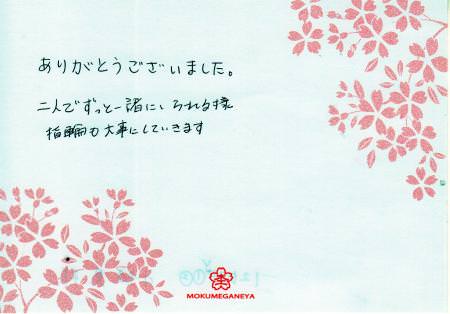 ありがとうございました。
二人でずっと一緒にいられる様
指輪も大事にしていきます
MOKUMEGANEYA